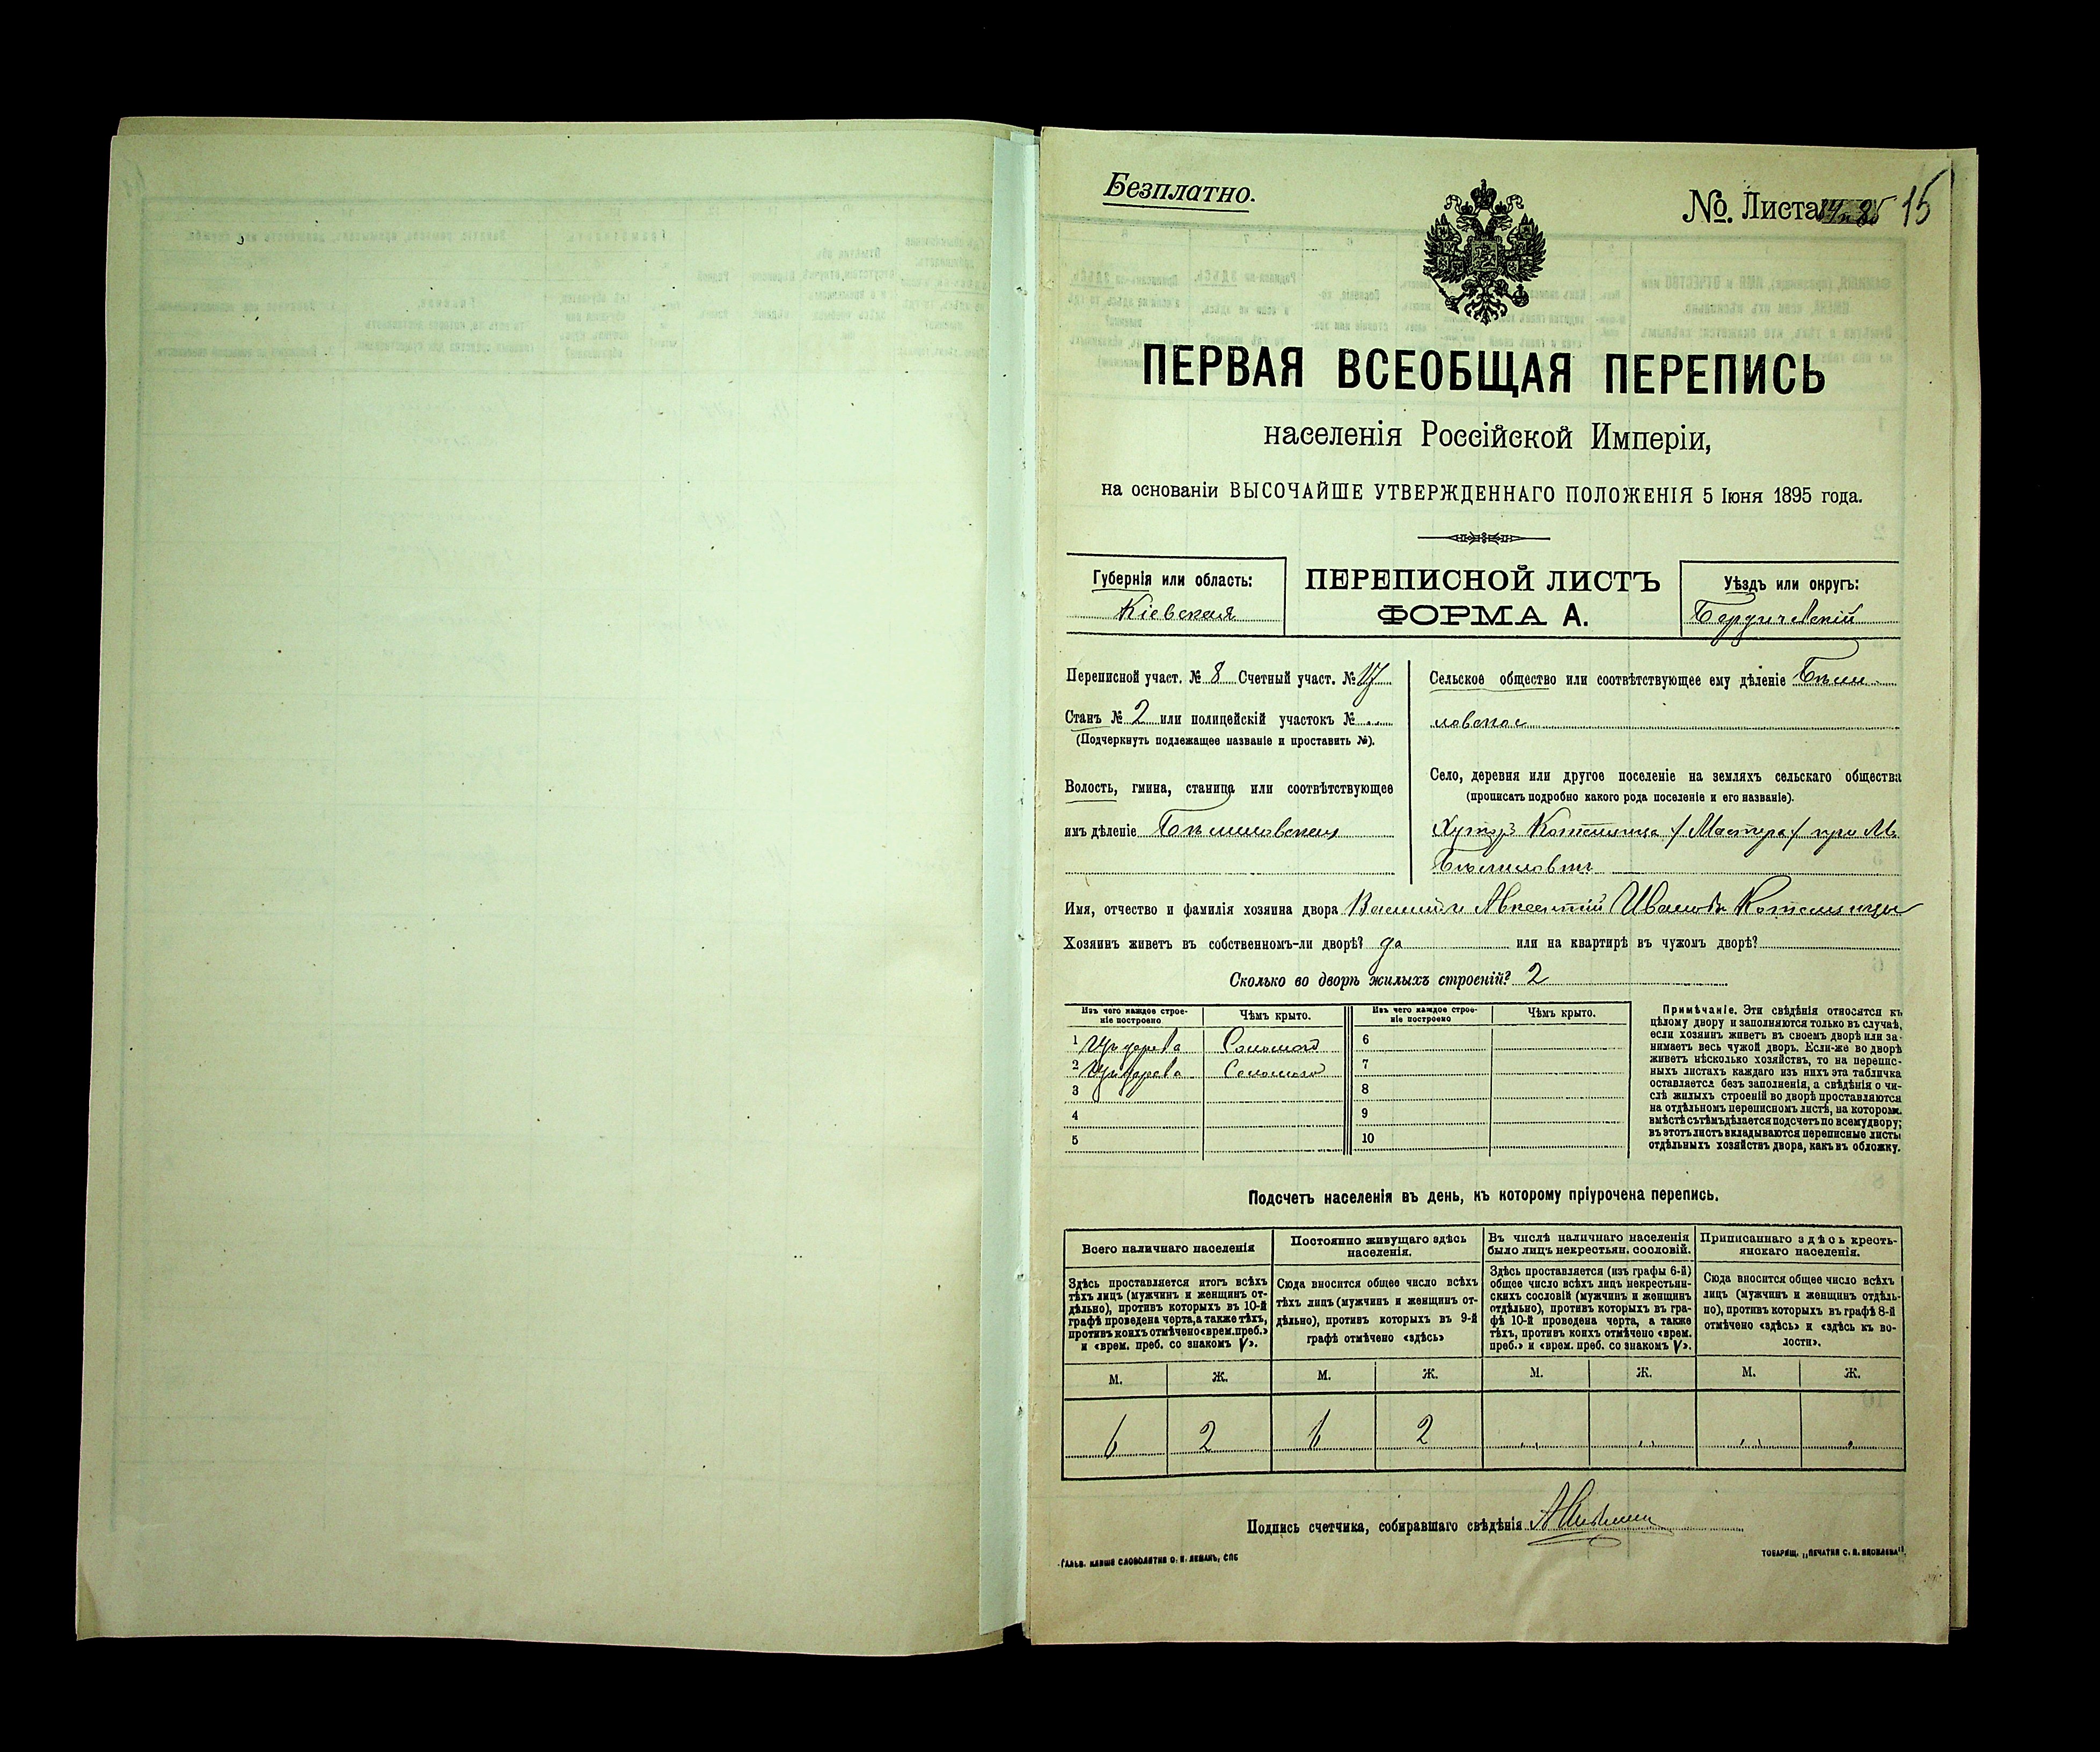 Безплатно.
№ Листа 15
ПЕРВАЯ ВСЕОБЩАЯ ПЕРЕПИСЬ
населенія Россійской Имперіи,
на основаніи ВЫСОЧАЙШЕ УТВЕРЖДЕННАГО ПОЛОЖЕНІЯ 5 Іюня 1895 года.
Губернія или область:
Кіевская
ПЕРЕПИСНОЙ ЛИСТЪ
ФОРМА А.
Уѣздъ или округъ:
Бердичевскій
Переписной участ. № 8 Счетный участ. № 17
Станъ № 2 или полицейскій участокъ №
(Подчеркнуть подлежащее названіе и проставить №).
Волость, гмина, станица или соотвѣтствующее
имъ дѣленіе Бѣлиловская
Сельское общество или соотвѣтствующее ему дѣленіе Бѣли-
ловское
Село, деревня или другое поселеніе на земляхъ сельскаго общества
(прописать подробно какого рода поселеніе и его названіе).
Хуторъ / Мастера / при М.
Бѣлиловкѣ
Имя, отчество и фамилія хозяина двора Василій и Авксентій Ивановы
Хозяинъ живетъ въ собственномъ-ли дворѣ? да или на квартирѣ въ чужомъ дворѣ?
Сколько во дворѣ жилыхъ строеній? 2
Изъ чего каждое строе-
ніе построено
Чѣмъ крыто.
Изъ чего каждое строе-
ніе построено
Чѣмъ крыто.
1 Изъ дерева Соломою 6
2 Изъ дерева Соломою 7
3 8
4 9
5 10
Примѣчаніе. Эти свѣдѣнія относятся къ
цѣлому двору и заполняются только въ случаѣ,
если хозяинъ живетъ въ своемъ дворѣ или за-
нимаетъ весь чужой дворъ. Если-же во дворѣ
живетъ нѣсколько хозяйствъ, то на перепис-
ныхъ листахъ каждаго изъ нихъ эта табличка
оставляется безъ заполненія, а свѣдѣнія о чи-
слѣ жилыхъ строеній во дворѣ проставляются
на отдѣльномъ переписномъ листѣ, на которомъ
вмѣстѣ съ тѣмъ дѣлается подсчетъ по всему двору;
въ этотъ листъ вкладываются переписные листы
отдѣльныхъ хозяйствъ двора, какъ въ обложку.
Подсчетъ населенія въ день, къ которому пріурочена перепись.
Всего наличнаго населенія
Здѣсь проставляется итогъ всѣхъ
тѣхъ лицъ (мужчинъ и женщинъ от-
дѣльно), противъ которыхъ въ 10-й
графѣ проведена черта, а также тѣхъ,
противъ коихъ отмѣчено «врем. преб.»
и «врем. преб. со знакомъ V».
Постоянно живущаго здѣсь
населенія.
Сюда вносится общее число всѣхъ
тѣхъ лицъ (мужчинъ и женщинъ от-
дѣльно), противъ которыхъ въ 9-й
графѣ отмѣчено «здѣсь»
Въ числѣ наличнаго населенія
было лицъ некрестьян. сословій.
Здѣсь проставляется (изъ графы 6-й)
общее число всѣхъ лицъ некрестьян-
скихъ сословій (мужчинъ и женщинъ
отдѣльно), противъ которыхъ въ гра-
фѣ 10-й проведена черта, а также
тѣхъ, противъ коихъ отмѣчено «врем.
преб.» и «врем. преб. со знакомъ V».
Приписаннаго здѣсь кресть-
янскаго населенія.
Сюда вносится общее число всѣхъ
лицъ (мужчинъ и женщинъ отдѣль-
но), противъ которыхъ въ графѣ 8-й
отмѣчено «здѣсь» и «здѣсь къ во-
лости».
М. Ж. М. Ж. М. Ж. М. Ж.
6 2 6 2
Подпись счетчика, собиравшаго свѣдѣнія
ГАЛЬВ. КЛИШЕ СЛОВОЛИТНИ О. И. ЛЕМАНЪ, СПБ
ТОВАРИЩ. „ПЕЧАТНЯ С. П. ЯКОВЛЕВА".